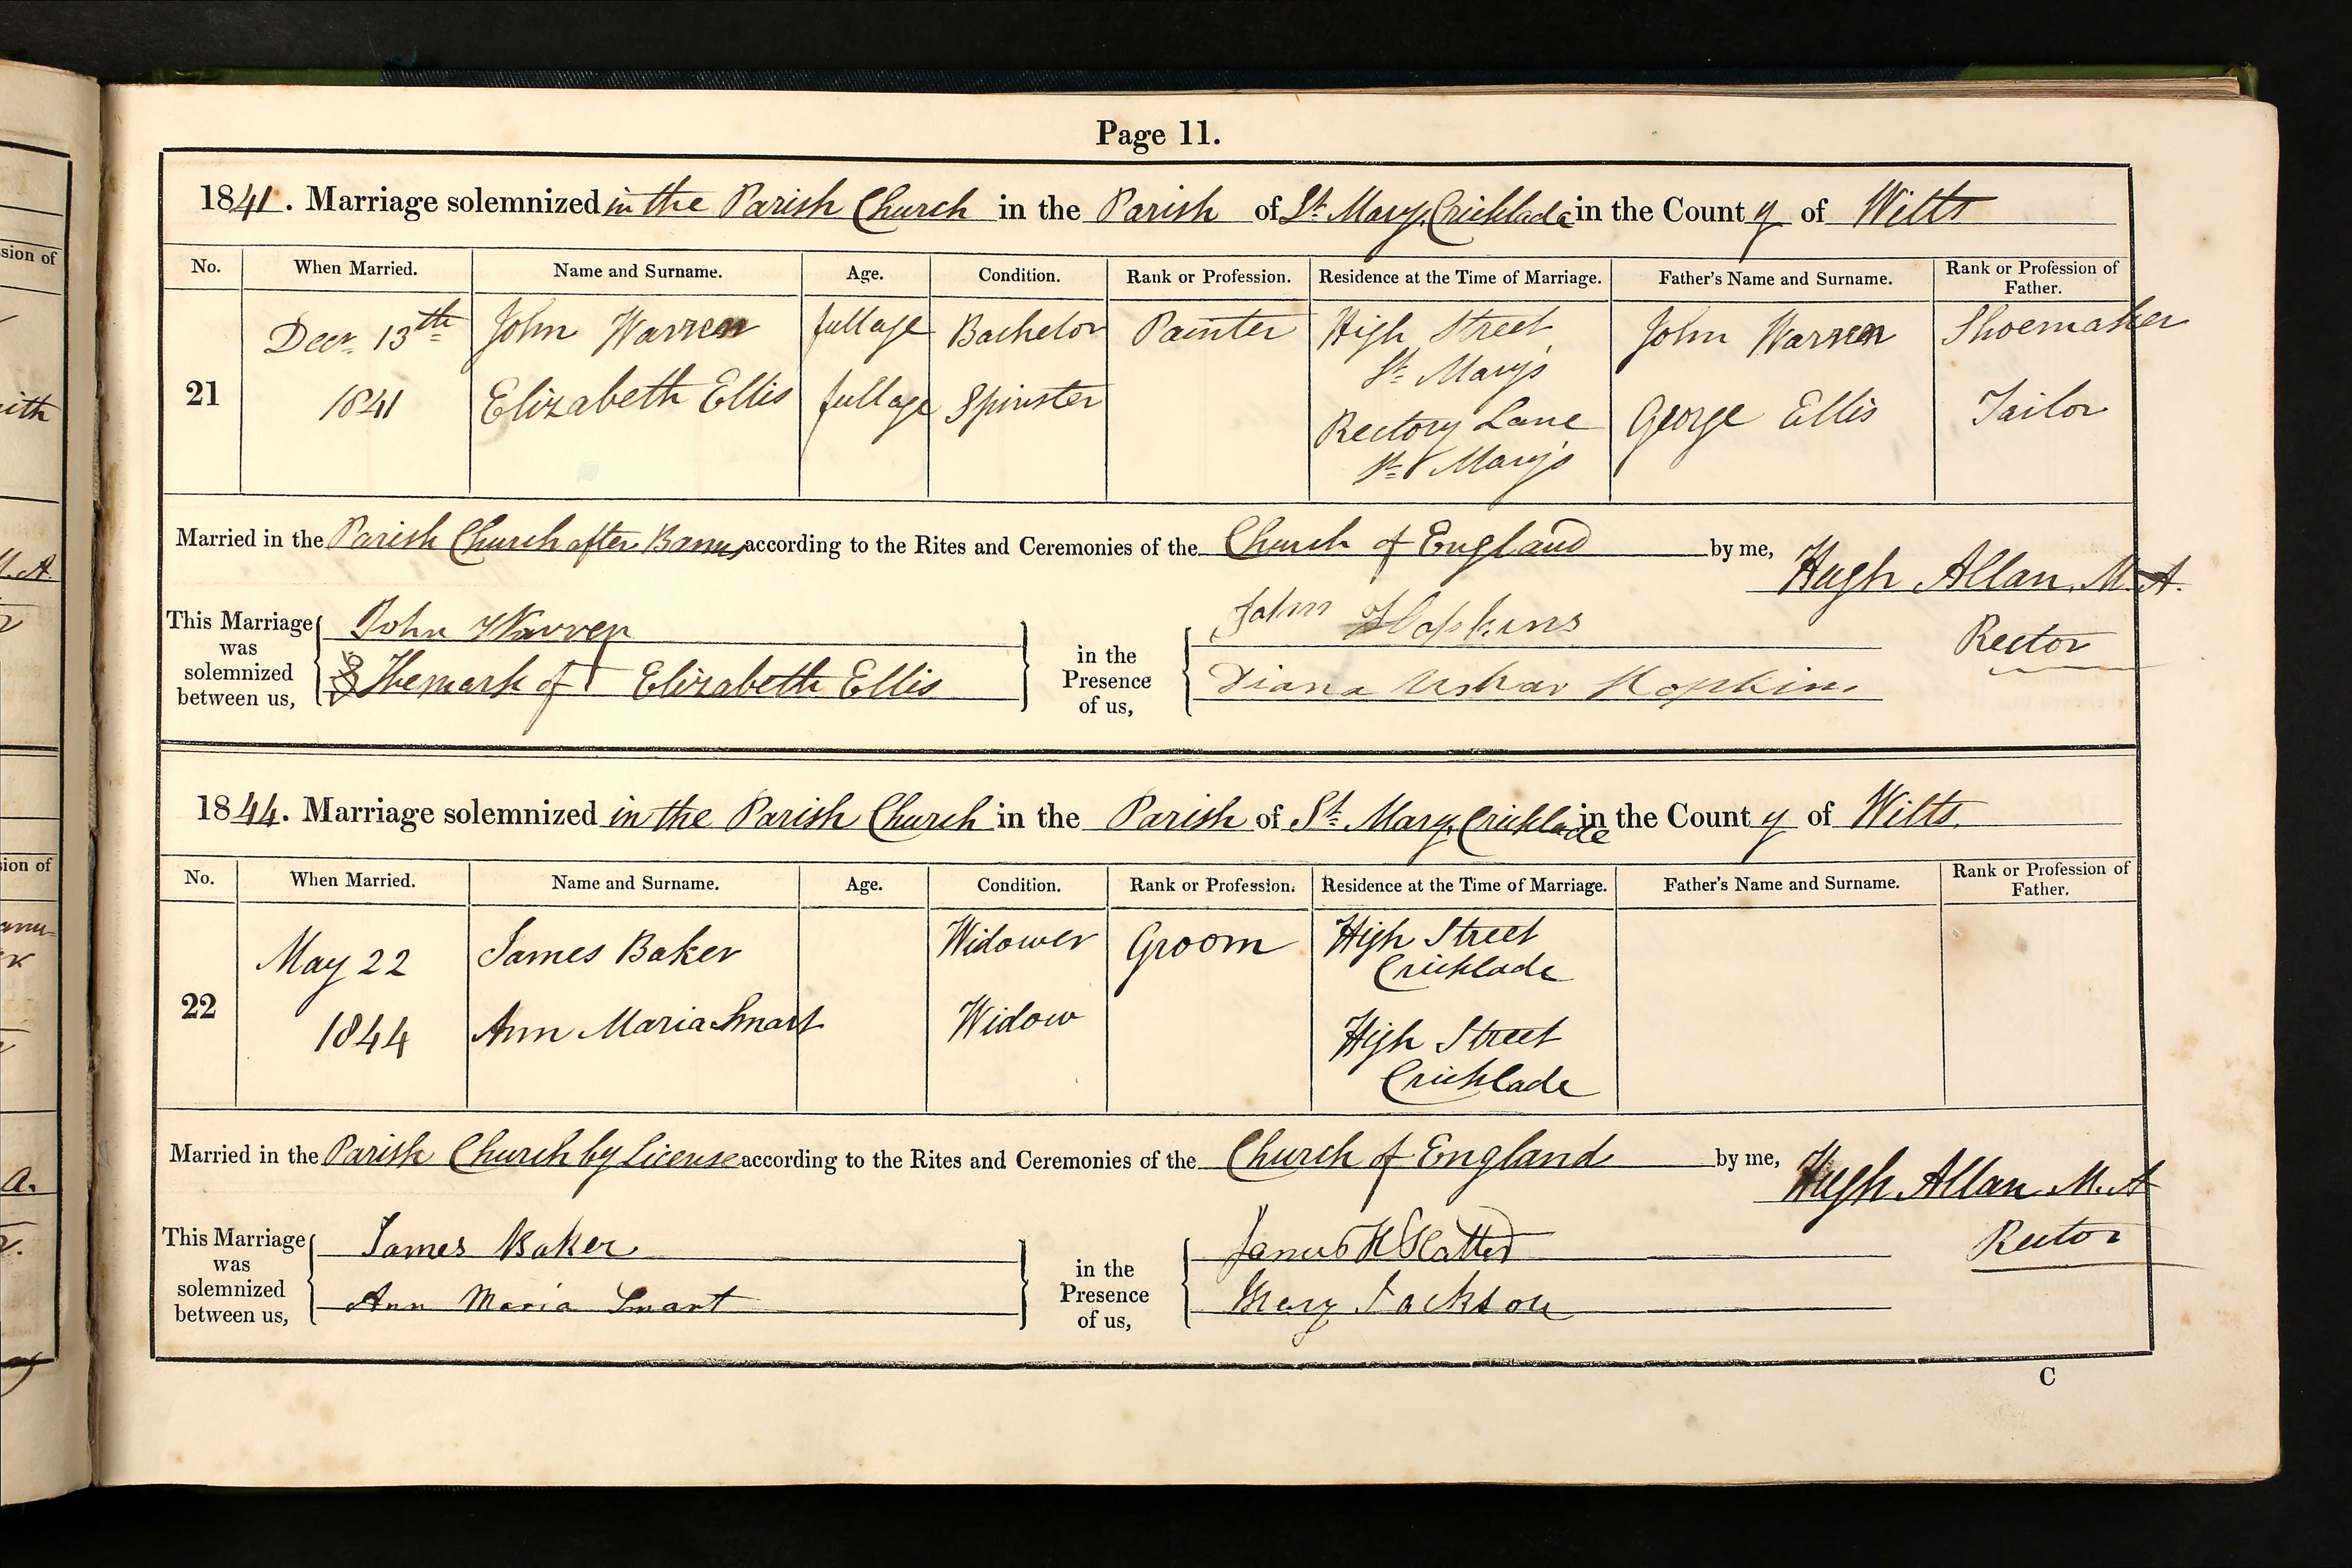 Page 11.
1841. Marriage solemnized in the Parish Church in the Parish of St. Mary, Cricklade in the County of Wilts
No. When Married. Name and Surname. Age. Condition. Rank or Profession. Residence at the Time of Marriage. Father's Name and Surname. Rank or Profession of Father.
Decr. 13th John Warren full age Bachelor Painter High Street John Warren Shoemaker
St. Mary's
21 1841 Elizabeth Ellis full age Spinster Rectory Lane George Ellis Tailor
St. Mary's
Married in the Parish Church after Banns according to the Rites and Ceremonies of the Church of England by me, Hugh Allan, M.A.
Rector
This Marriage was solemnized between us, John Warren
The mark of + Elizabeth Ellis
in the Presence of us, John Hopkins
Diana Hopkins
1844. Marriage solemnized in the Parish Church in the Parish of St. Mary, Cricklade in the County of Wilts.
No. When Married. Name and Surname. Age. Condition. Rank or Profession. Residence at the Time of Marriage. Father's Name and Surname. Rank or Profession of Father.
May 22 James Baker Widower Groom High Street
Cricklade
22 1844 Ann Maria Smart Widow High Street
Cricklade
Married in the Parish Church by License according to the Rites and Ceremonies of the Church of England by me, Hugh Allan M.A
Rector
This Marriage was solemnized between us, James Baker
Ann Maria Smart
in the Presence of us, James H
Mary Jackson
C